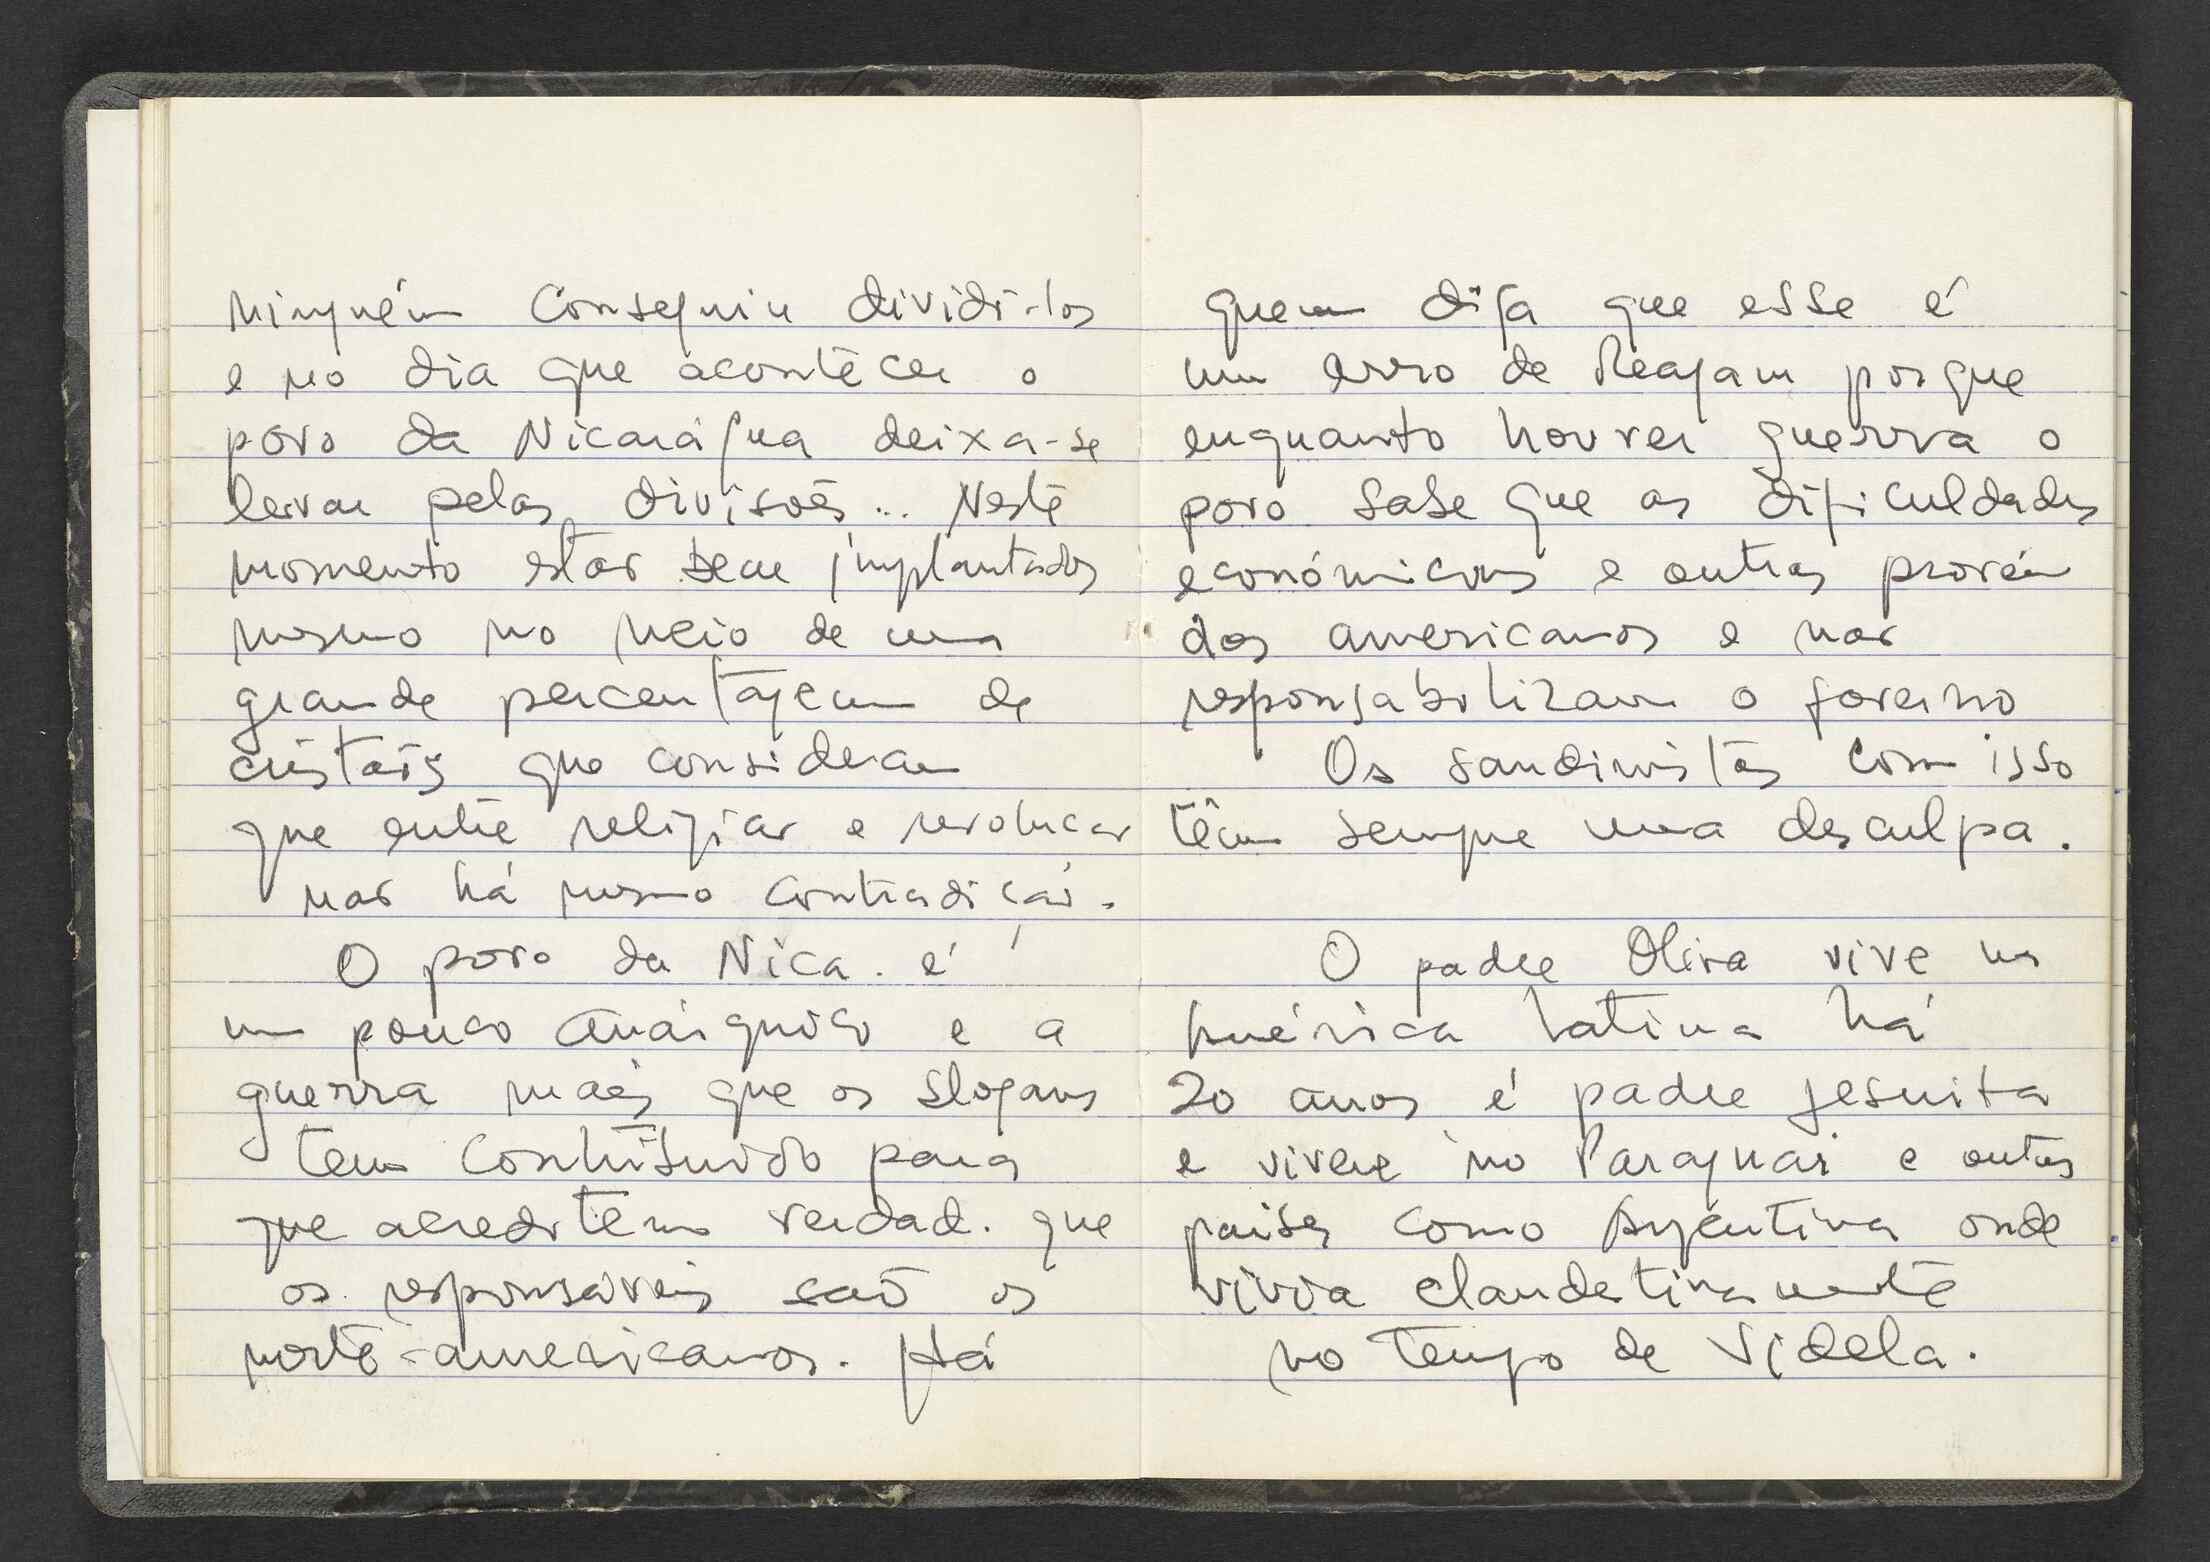 ninguém conseguiu dividi-los
e no dia que acontecer o
povo da Nicarágua deixa-se
levar pelas divisões... Neste
momento estão bem implantados
mesmo no meio de uma
grande percentagem de
cristãos que consideram
que entre religião e revolução
não há mesmo contradição.
O povo da Nica. é
um pouco anárquico e a
guerra mais que os slogans
tem contribuido para
que acreditem verdad. que
os responsáveis são os
norte-americanos. Há
quem diga que esse é
um erro de Reagam porque
enquanto houver guerra o
povo sabe que as dificuldades
económicas e outras provém
dos americanos e não
responsabilizam o governo
Os sandinistas com isso
têm sempre uma desculpa.
O padre Oliva vive na
América Latina há
20 anos é padre jesuita
e viveu no Paraguai e outros
paises como Argentina onde
vivia clandetinamente
no tempo de Videla.